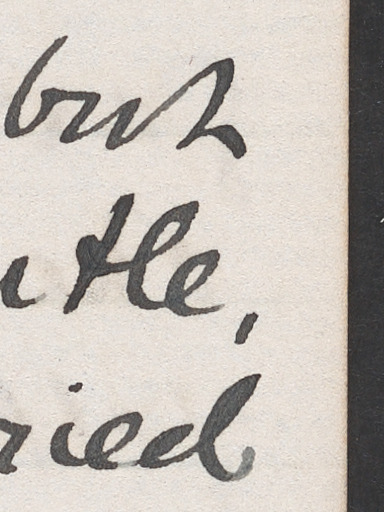 but
ntle,
ried